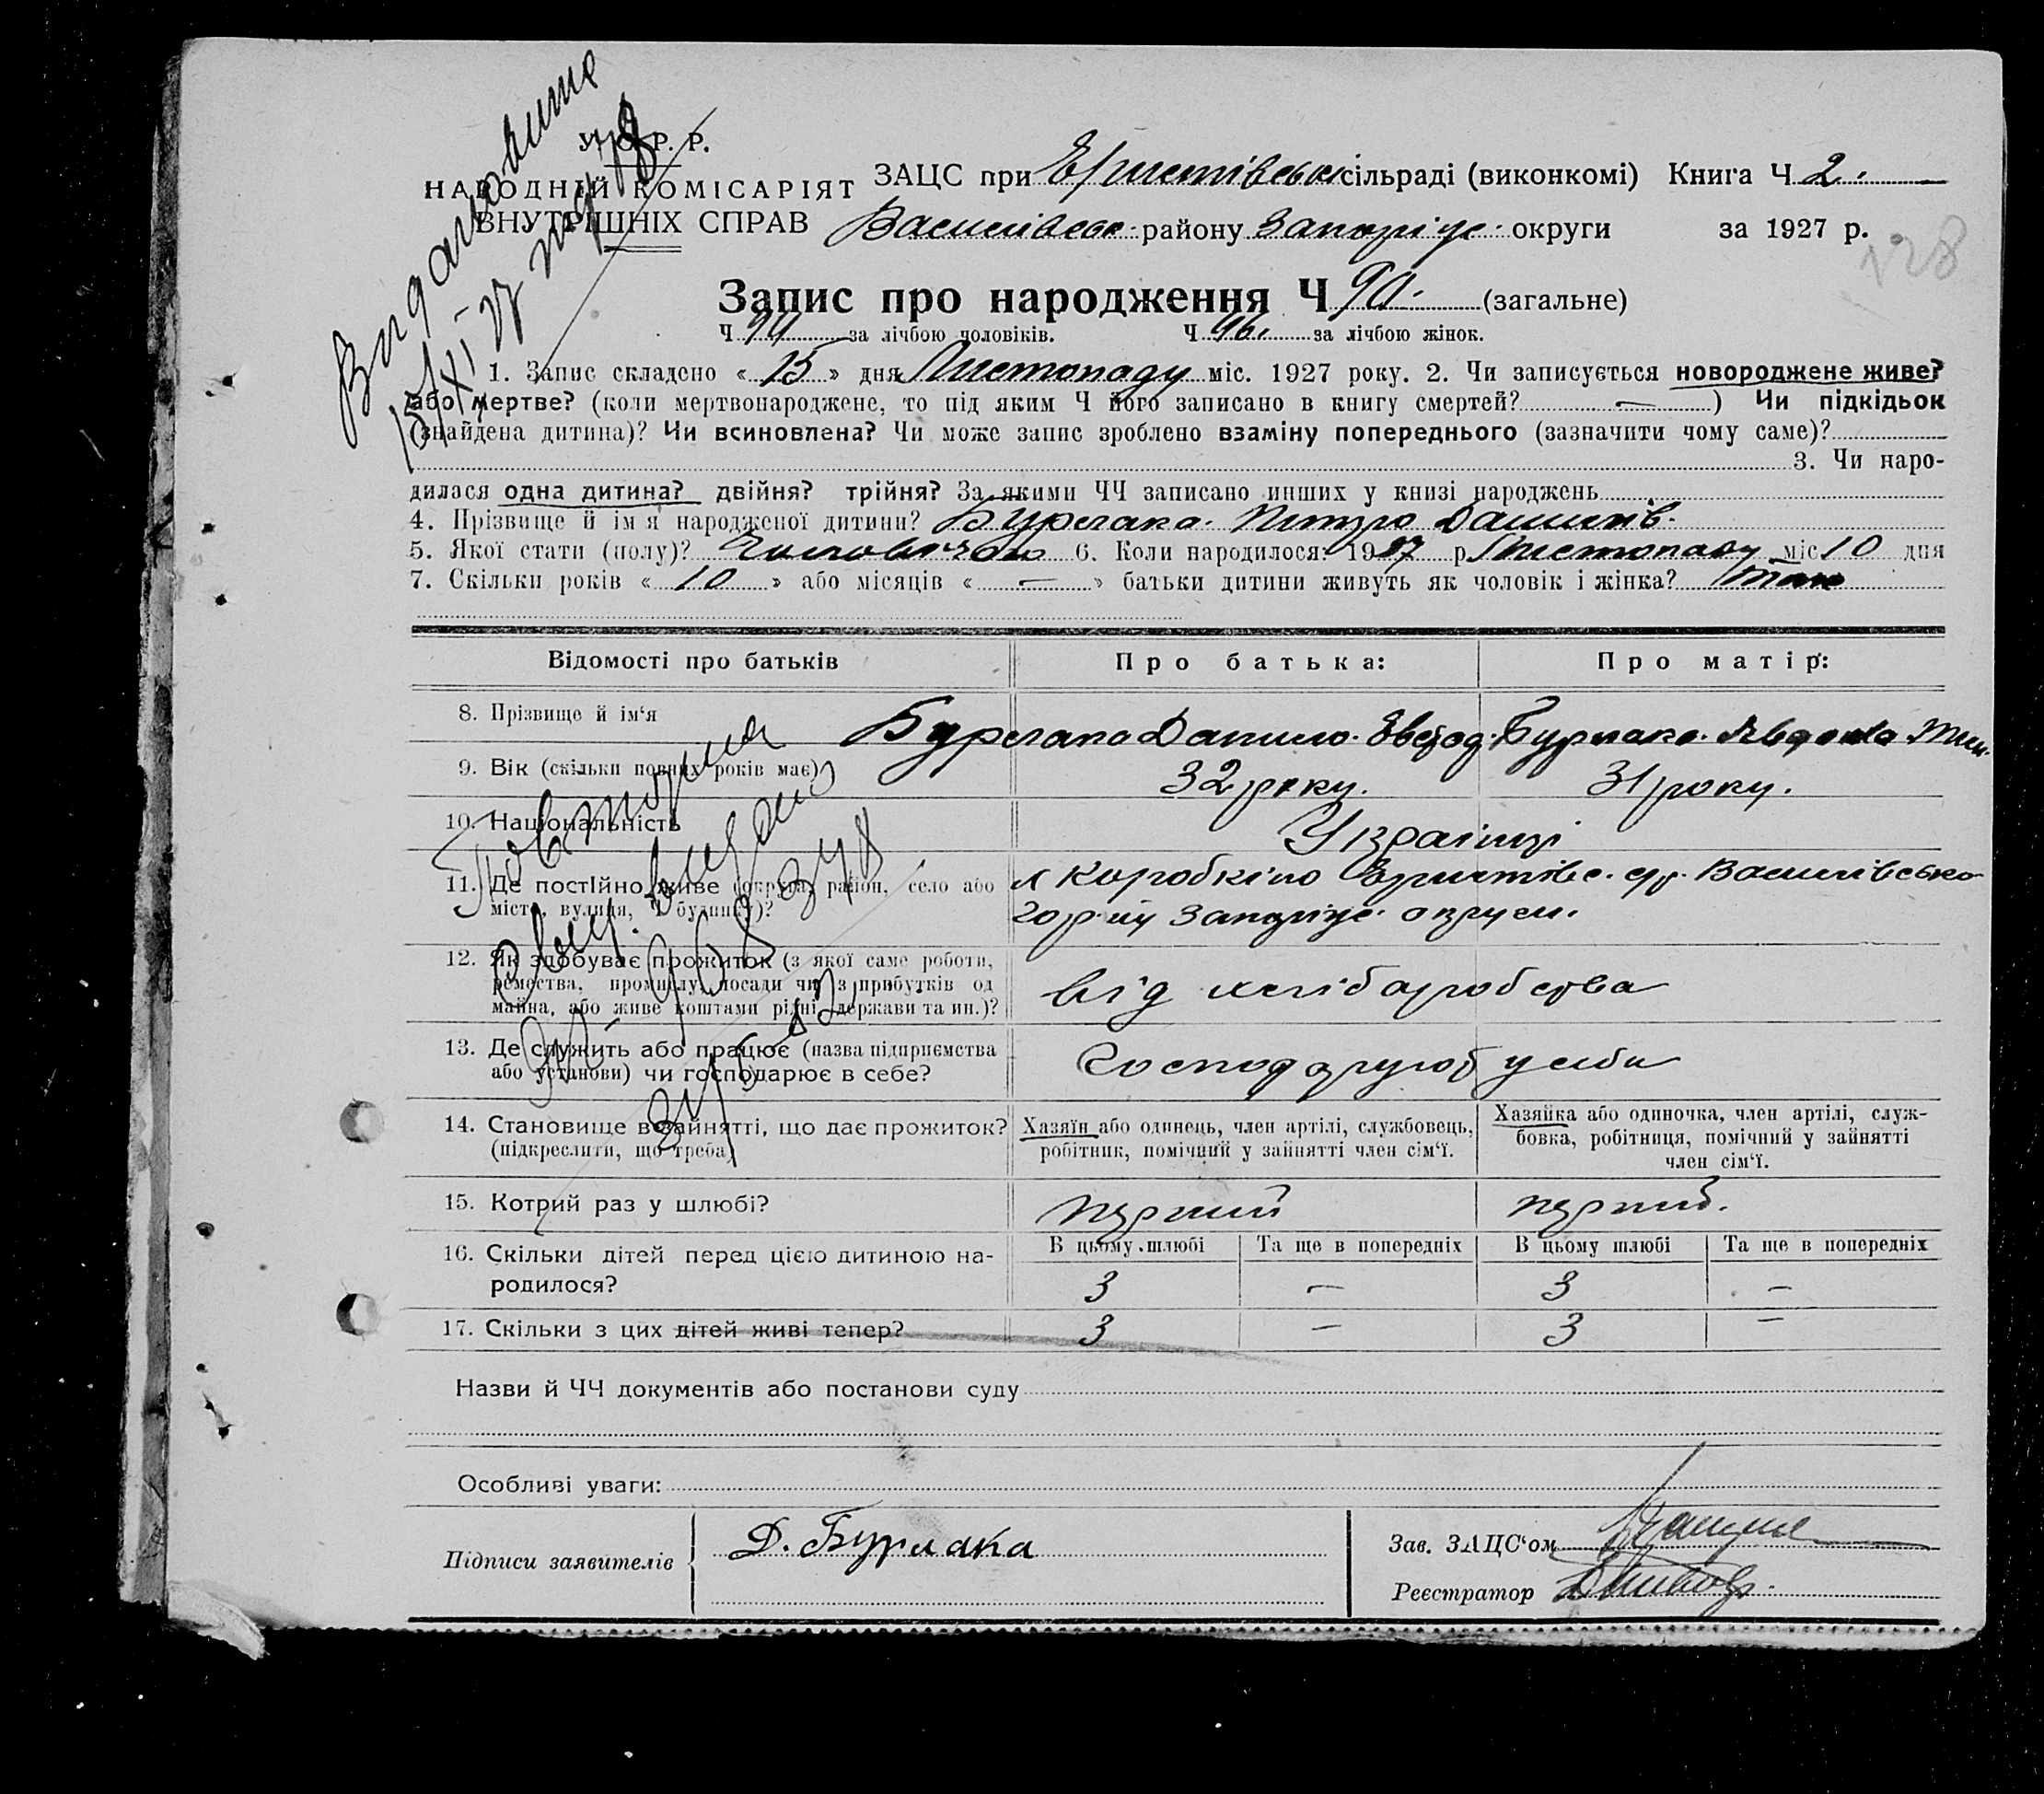 У. С. Р. Р.
НАРОДНІЙ КОМІСАРІЯТ
ВНУТРІШНІХ СПРАВ
ЗАЦС при сільраді (виконкомі) Книга Ч 2.
Василівськ. району Запоріж. округи за 1927 р.
128
Запис про народження Ч 90. (загальне)
Ч за лічбою чоловіків. Ч 46. за лічбою жінок.
1. Запис складено « 15 » дня Листопаду міс. 1927 року. 2. Чи записується новороджене живе?
або мертве? (коли мертвонароджене, то під яким Ч його записано в книгу смертей? — ) Чи підкідьок
(знайдена дитина)? Чи всиновлена? Чи може запис зроблено взаміну попереднього (зазначити чому саме)?
3. Чи наро-
дилася одна дитина? двійня? трійня? За якими ЧЧ записано инших у книзі народжень
4. Прізвище й ім'я народженої дитини? Бурлака. Петро Данилів.
5. Якої стати (полу)? 6. Коли народилося: 1927 р Листопаду міс 10 дня
7. Скільки років « 10 » або місяців « — » батьки дитини живуть як чоловік і жінка? Так
Відомості про батьків
Про батька:
Про матір:
8. Прізвище й ім'я Бурлака Данило. Бурлака.
9. Вік (скільки повних років має) 32 року. 31 року.
10. Національність Українці
11. Де постійно живе (округа, район, село або
місто, вулиця, Ч будинку)?
х Коробкіно с/р. Василівсько
го р-ну Запоріж. округи.
12. Як здобуває прожиток (з якої саме роботи,
ремества, промислу, посади чи з прибутків од
майна, або живе коштами рідні, держави та ин.)?
від хліборобства
13. Де служить або працює (назва підприємства
або установи) чи господарює в себе?
14. Становище в зайнятті, що дає прожиток?
(підкреслити, що треба)
Хазяїн або одинець, член артілі, службовець,
робітник, помічний у зайнятті член сім'ї.
Хазяйка або одиночка, член артілі, служ-
бовка, робітниця, помічний у зайнятті
член сім'ї.
15. Котрий раз у шлюбі? перший перший.
16. Скільки дітей перед цією дитиною на-
родилося?
В цьому шлюбі Та ще в попередніх В цьому шлюбі Та ще в попередніх
3 — 3 —
17. Скільки з цих дітей живі тепер? 3 — 3 —
Назви й ЧЧ документів або постанови суду
Особливі уваги:
Підписи заявителів Д. Бурлака
Зав. ЗАЦС'ом
Реєстратор